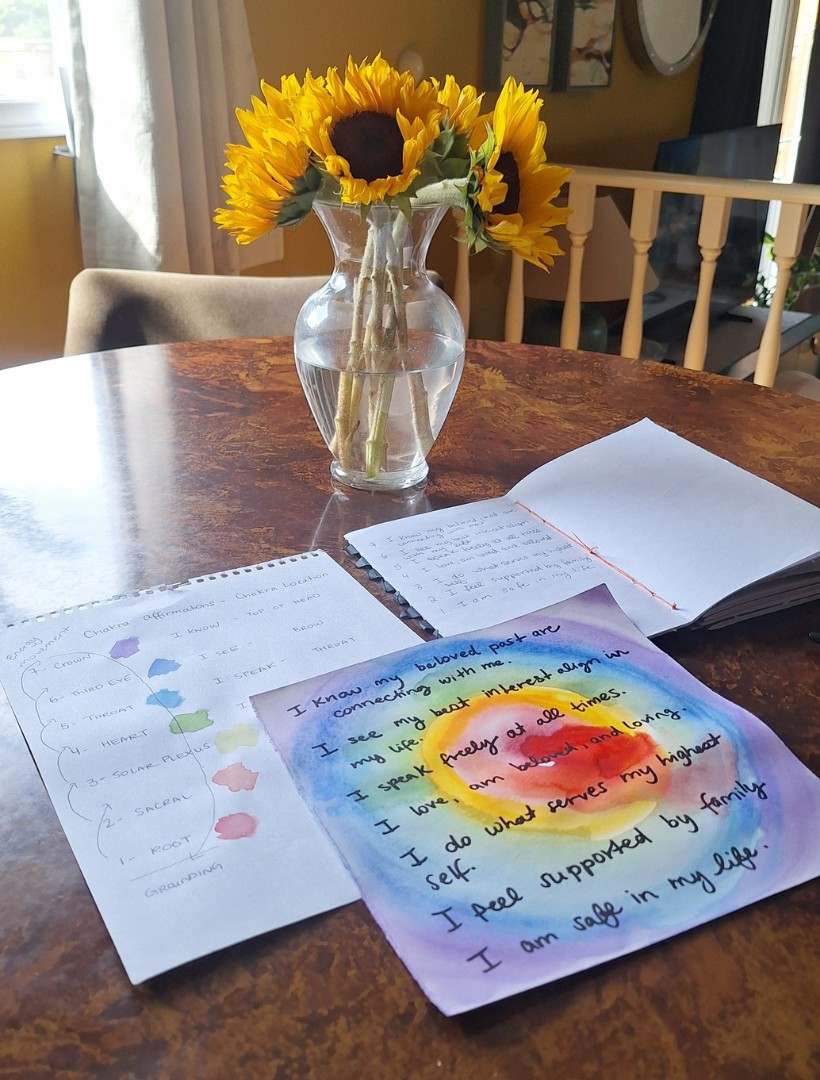 Energy
movement
Chakra affirmations - Chakra Location
7- CROWN I KNOW - TOP OF HEAD
6- THIRD EYE I SEE BROW
5- THROAT I SPEAK - THROAT
4- HEART I
3- SOLAR PLEXUS
2- SACRAL
1- ROOT
GROUNDING
I know my beloved past are
connecting with me.
I see my best interest align in
my life.
I speak freely at all times.
I love, am beloved, and loving.
I do what serves my highest
self.
I feel supported by family
I am safe in my life.
I know my beloved
connecting
I see my
my life
I speak freely at all
I do what serves my highest
self
2 I feel supported by family
1. I am safe in my life